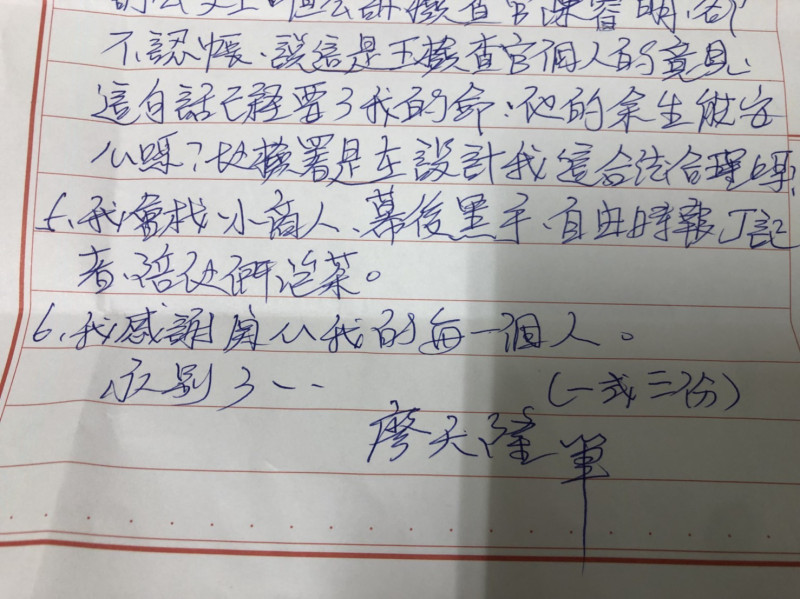 的公文上 公訴檢查官陳睿明、卻
不認帳、說這是王檢查官個人的意見、
這句話已經要了我的命:他的余生能安
心嗎?地檢署是在設計我這合法合理嗎?
5、我會找小商人、幕後黑手、自由時報丁記
者、陪他們泡茶。
6、我感謝關心我的每一個人。
永別了、、 (一式三份)
廖天隆 筆